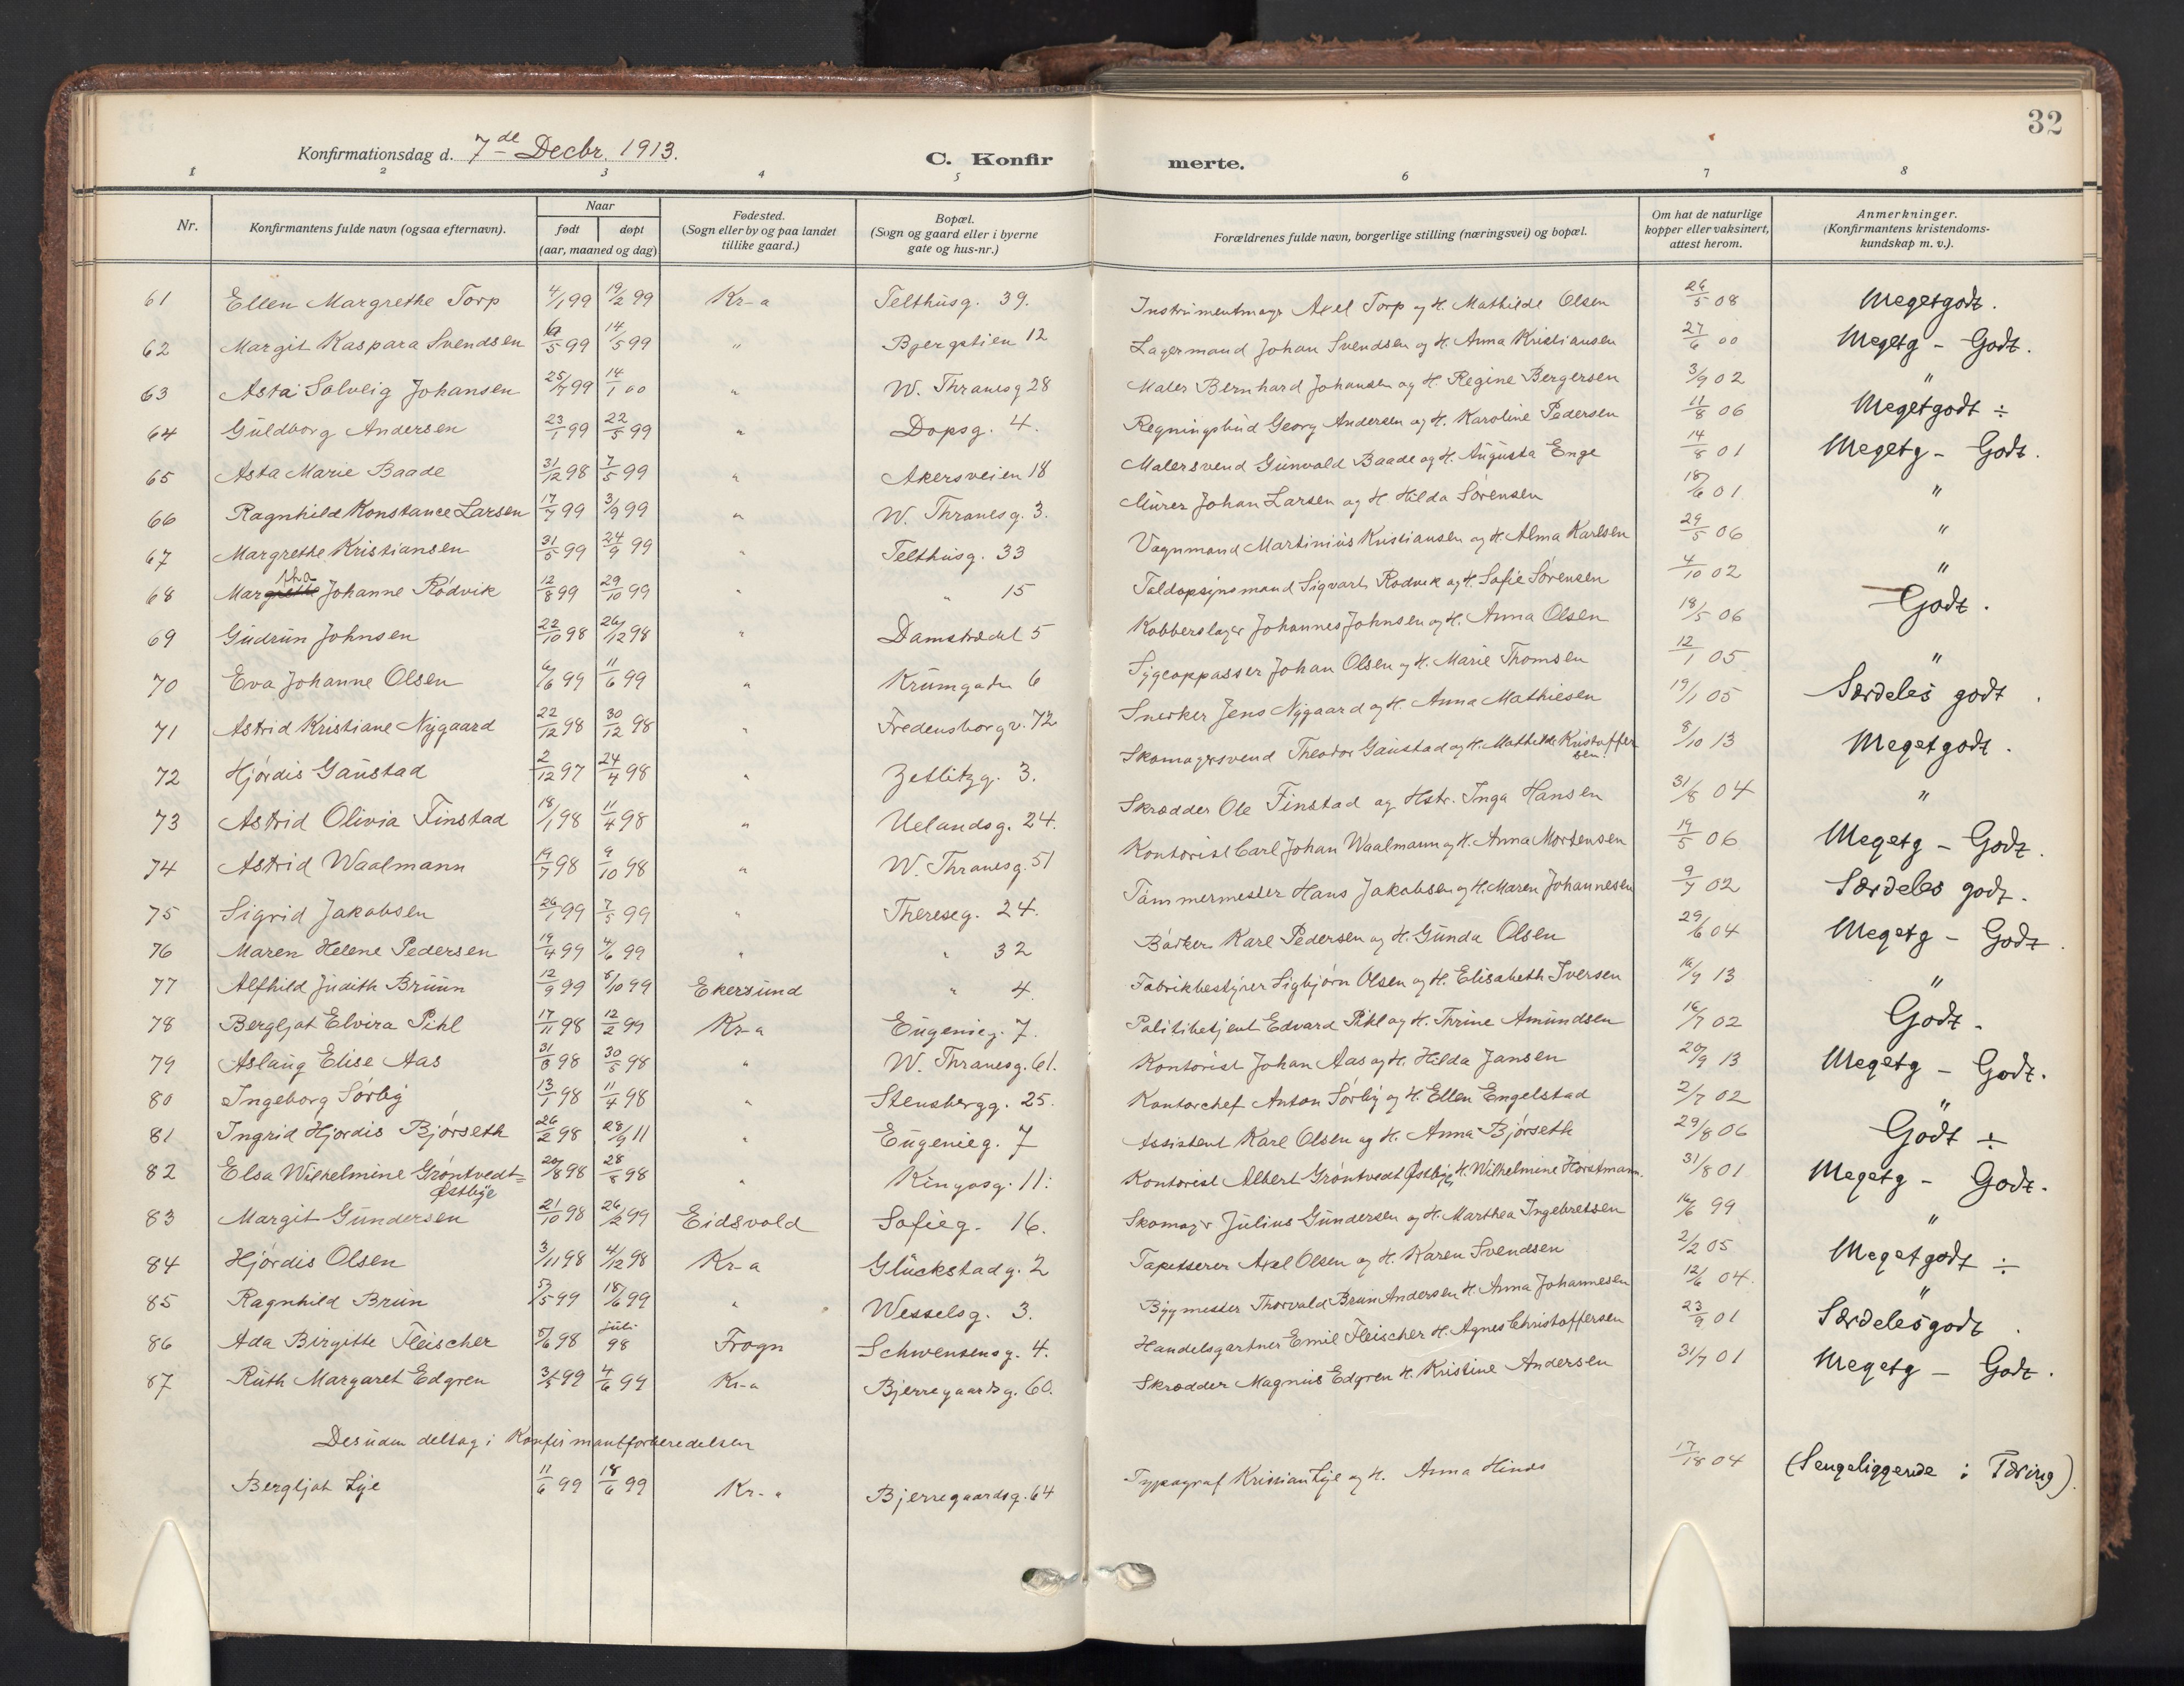 32
Konfirmationsdag d. 7de Decbr. 1913. C. Konfir merte.
1 2 3 4 5 6 7 8
Nr. Konfirmantens fulde navn (ogsaa efternavn). Naar født døpt (aar, maaned og dag) Fødested. (Sogn eller by og paa landet tillike gaard.) Bopæl. (Sogn og gaard eller i byerne gate og hus-nr.) Forældrenes fulde navn, borgerlige stilling (næringsvei) og bopæl. Om hat de naturlige kopper eller vaksinert, attest herom. Anmerkninger. (Konfirmantens kristendomskundskap m. v.).
61 Ellen Margrethe Torp 4/1 99 19/2 99 Kr-a Telthusg. 39. Instrumentmagr Axel Torp og H. Mathilde Olsen 26/5 08 Megetgodt.
62 Margit Kaspara Svendsen 6/5 99 14/5 99 " Bjergstien 12 Lagermand Johan Svendsen og H. Anna Kristiansen 27/6 00 Megetg - Godt.
63 Asta Solveig Johansen 25/7 99 14/1 00 " W. Thranesg 28 Maler Bernhard Johansen og H. Regine Bergersen 3/9 02 "
64 Guldborg Andersen 23/1 99 22/5 99 " Dopsg. 4. Regningsbud Georg Andersen og H. Karoline Pedersen 11/8 06 Megetgodt ÷
65 Asta Marie Baade 31/12 98 7/5 99 " Akersveien 18 Malersvend Gunvald Baade og H. Augusta Enge 14/8 01 Megetg - Godt.
66 Ragnhild Konstance Larsen 17/7 99 3/9 99 " W. Thranesg. 3. Murer Johan Larsen og H. Hilda Sørensen 18/6 01 "
67 Margrethe Kristiansen 31/5 99 24/9 99 " Telthusg. 33 Vognmand Martinius Kristiansen og H. Alma Karlsen 29/5 06 "
68 Margrethe tha Johanne Rødvik 12/8 99 29/10 99 " " 15 Toldopsynsmand Sigvart Rødvik og H. Sofie Sørensen 4/10 02 "
69 Gudrun Johnsen 22/10 98 26/12 98 " Damstrædet 5 Kobberslager Johannes Johnsen og H. Anna Olsen 18/5 06 Godt.
70 Eva Johanne Olsen 6/6 99 11/6 99 " Krumgaten 6 Sygeoppasser Johan Olsen og H. Marie Thomsen 12/1 05 "
71 Astrid Kristiane Nygaard 22/12 98 30/12 98 " Fredensborgv. 72 Snekker Jens Nygaard og H. Anna Mathiesen 19/1 05 Særdeles godt.
72 Hjørdis Gaustad 2/12 97 24/4 98 " Zetlitzg. 3. Skomagersvend Theodor Gaustad og H. Mathilde Kristoffersen. 8/10 13 Megetgodt.
73 Astrid Olivia Finstad 18/1 98 11/4 98 " Uelandsg. 24. Skrædder Ole Finstad og Hstr. Inga Hansen 31/8 04 "
74 Astrid Waalmann 19/7 98 9/10 98 " W. Thranesg. 51 Kontorist Carl Johan Waalmann og H. Anna Mortensen 19/5 06 Megetg - Godt.
75 Sigrid Jakobsen 26/1 99 7/5 99 " Thereseg. 24. Tømmermester Hans Jakobsen og H. Maren Johannesen 9/7 02 Særdeles godt.
76 Maren Helene Pedersen 19/4 99 4/6 99 " " 32 Bødker Karl Pedersen og H. Gunda Olsen 29/6 04 Megetg - Godt.
77 Alfhild Judith Bruun 12/9 99 8/10 99 Ekersund " 4 Fabrikbestyrer Sigbjørn Olsen og H. Elisabeth Iversen 16/9 13 "
78 Bergljot Elvira Pihl 17/11 98 12/2 99 Kr-a Eugenieg. 7. Politibetjent Edvard Pihl og H. Thrine Amundsen 16/7 02 Godt.
79 Aslaug Elise Aas 31/3 98 30/5 98 " W. Thranesg. 61. Kontorist Johan Aas og H. Hilda Jansen 20/9 13 Megetg - Godt.
80 Ingeborg Sørby 13/1 98 11/4 98 " Stensbergg. 25. Kontorchef Anton Sørby og H. Ellen Engelstad 2/7 02 "
81 Ingrid Hjørdis Bjørseth 26/2 98 28/9 11 " Eugenieg. 7 Assistent Karl Olsen og H. Anna Bjørseth 29/8 06 Godt ÷
82 Elsa Wilhelmine Grøntvedt= Østbye 20/8 98 28/8 98 " Kingosg. 11: Kontorist Albert Grøntvedt Østbye H. Wilhelmine Horstmann. 31/8 01 Megetg - Godt.
83 Margit Gundersen 21/10 98 26/2 99 Eidsvold Sofieg. 16. Skomagr Julius Gundersen og H. Marthea Ingebretsen 16/6 99 "
84 Hjørdis Olsen 3/11 98 4/12 98 Kr-a Glückstadg. 2 Tapetserer Axel Olsen og H. Karen Svendsen 2/2 05 Megetgodt ÷
85 Ragnhild Brun 5/5 99 18/6 99 " Wesselsg. 3. Bygmester Thorvald Brun Andersen H. Anna Johannesen 12/6 04. "
86 Ada Birgitte Fleischer 5/6 98 juli 98 Frogn Schwensensg. 4. Handelsgartner Emil Fleischer H. Agnes Christoffersen 23/9 01 Særdelesgodt.
87 Ruth Margaret Edgren 3/5 99 4/6 99 Kr-a Bjerregaardsg. 60. Skrædder Magnus Edgren H. Kristine Andersen 31/7 01 Megetg - Godt.
Desuden deltog i Konfirmantforberedelsen
Bergljot Lye 11/6 99 18/6 99 Kr-a Bjerregaardsg. 64 Typograf Kristian Lye og H. Anna Hinds 17/18 04 (Sengeliggende i Tæring).